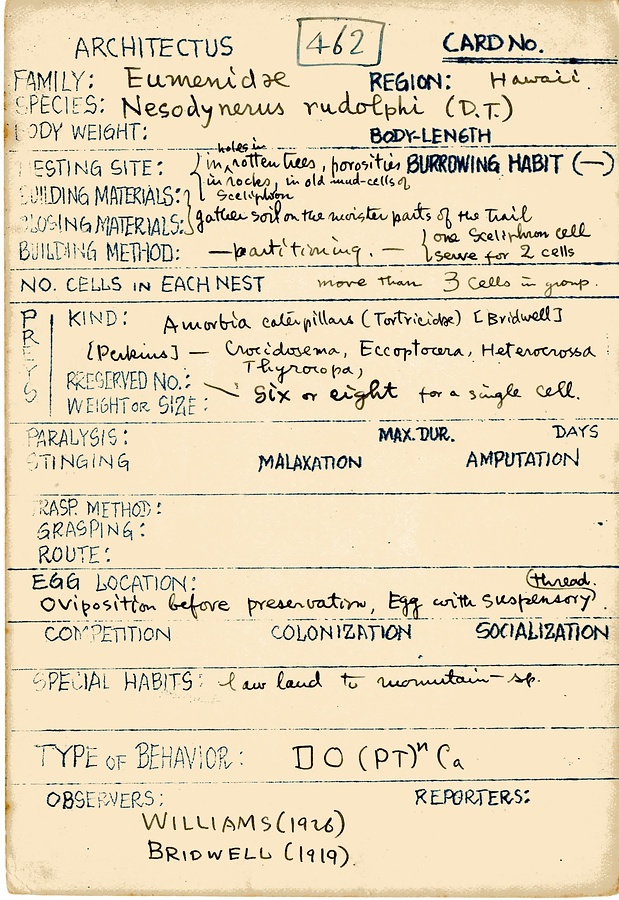 ARCHITECTUS 462 CARD No.
FAMILY: Eumenidae REGION: Hawaii.
SPECIES: Nesodynerus rudolphi (D.T.)
BODY WEIGHT: BODY-LENGTH
holes in
NESTING SITE: { in rotten trees, porosities BURROWING HABIT (—)
in rocks, in old mud-cells of
BUILDING MATERIALS: Sceliphron
CLOSING MATERIALS: gather soil on the moister parts of the trail
BUILDING METHOD: — partitioning. — { one Sceliphron cell
serve for 2 cells
NO. CELLS IN EACH NEST more than 3 cells in group.
PREYS
KIND: Amorbia caterpillars (Tortricidae) [Bridwell]
[Perkins] — Crocidosema, Eccoptocera, Heterocrossa
Thyrocopa,
PRESERVED NO.: Six or eight for a single cell.
WEIGHT OR SIZE:
PARALYSIS: MAX. DUR. DAYS
STINGING MALAXATION AMPUTATION
TRASP. METHOD:
GRASPING:
ROUTE:
EGG LOCATION: (thread.
Oviposition before preservation, Egg with suspensory)
COMPETITION COLONIZATION SOCIALIZATION
SPECIAL HABITS: law land to momutain-sp.
TYPE OF BEHAVIOR: I O (PT)ⁿ Ca
OBSERVERS: REPORTERS:
WILLIAMS (1926)
BRIDWELL (1919)